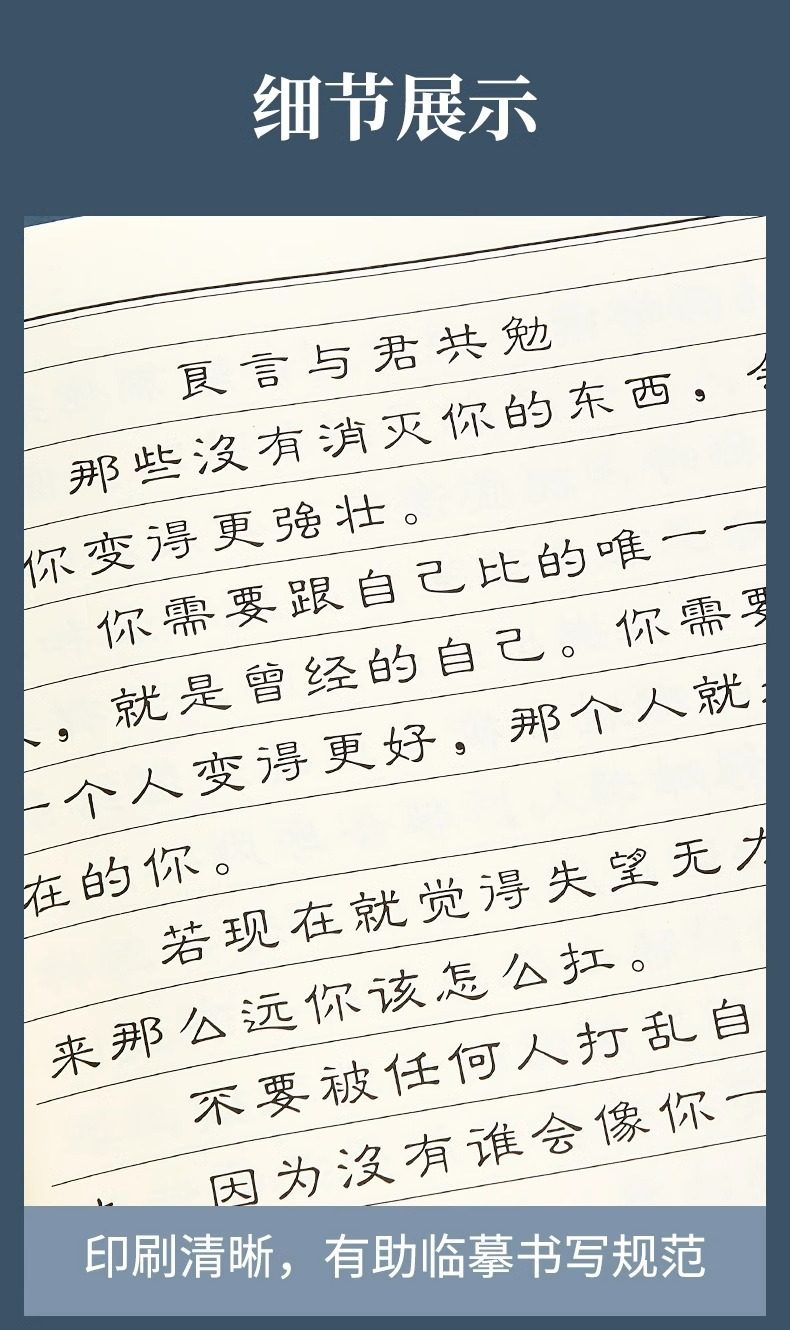 细节展示
良言与君共勉
那些没有消灭你的东西，会
你变得更强壮。
你需要跟自己比的唯一一
人，就是曾经的自己。你需要
一个人变得更好，那个人就
在的你。
若现在就觉得失望无力
来那么远你该怎么扛。
不要被任何人打乱自
因为没有谁会像你一
印刷清晰，有助临摹书写规范